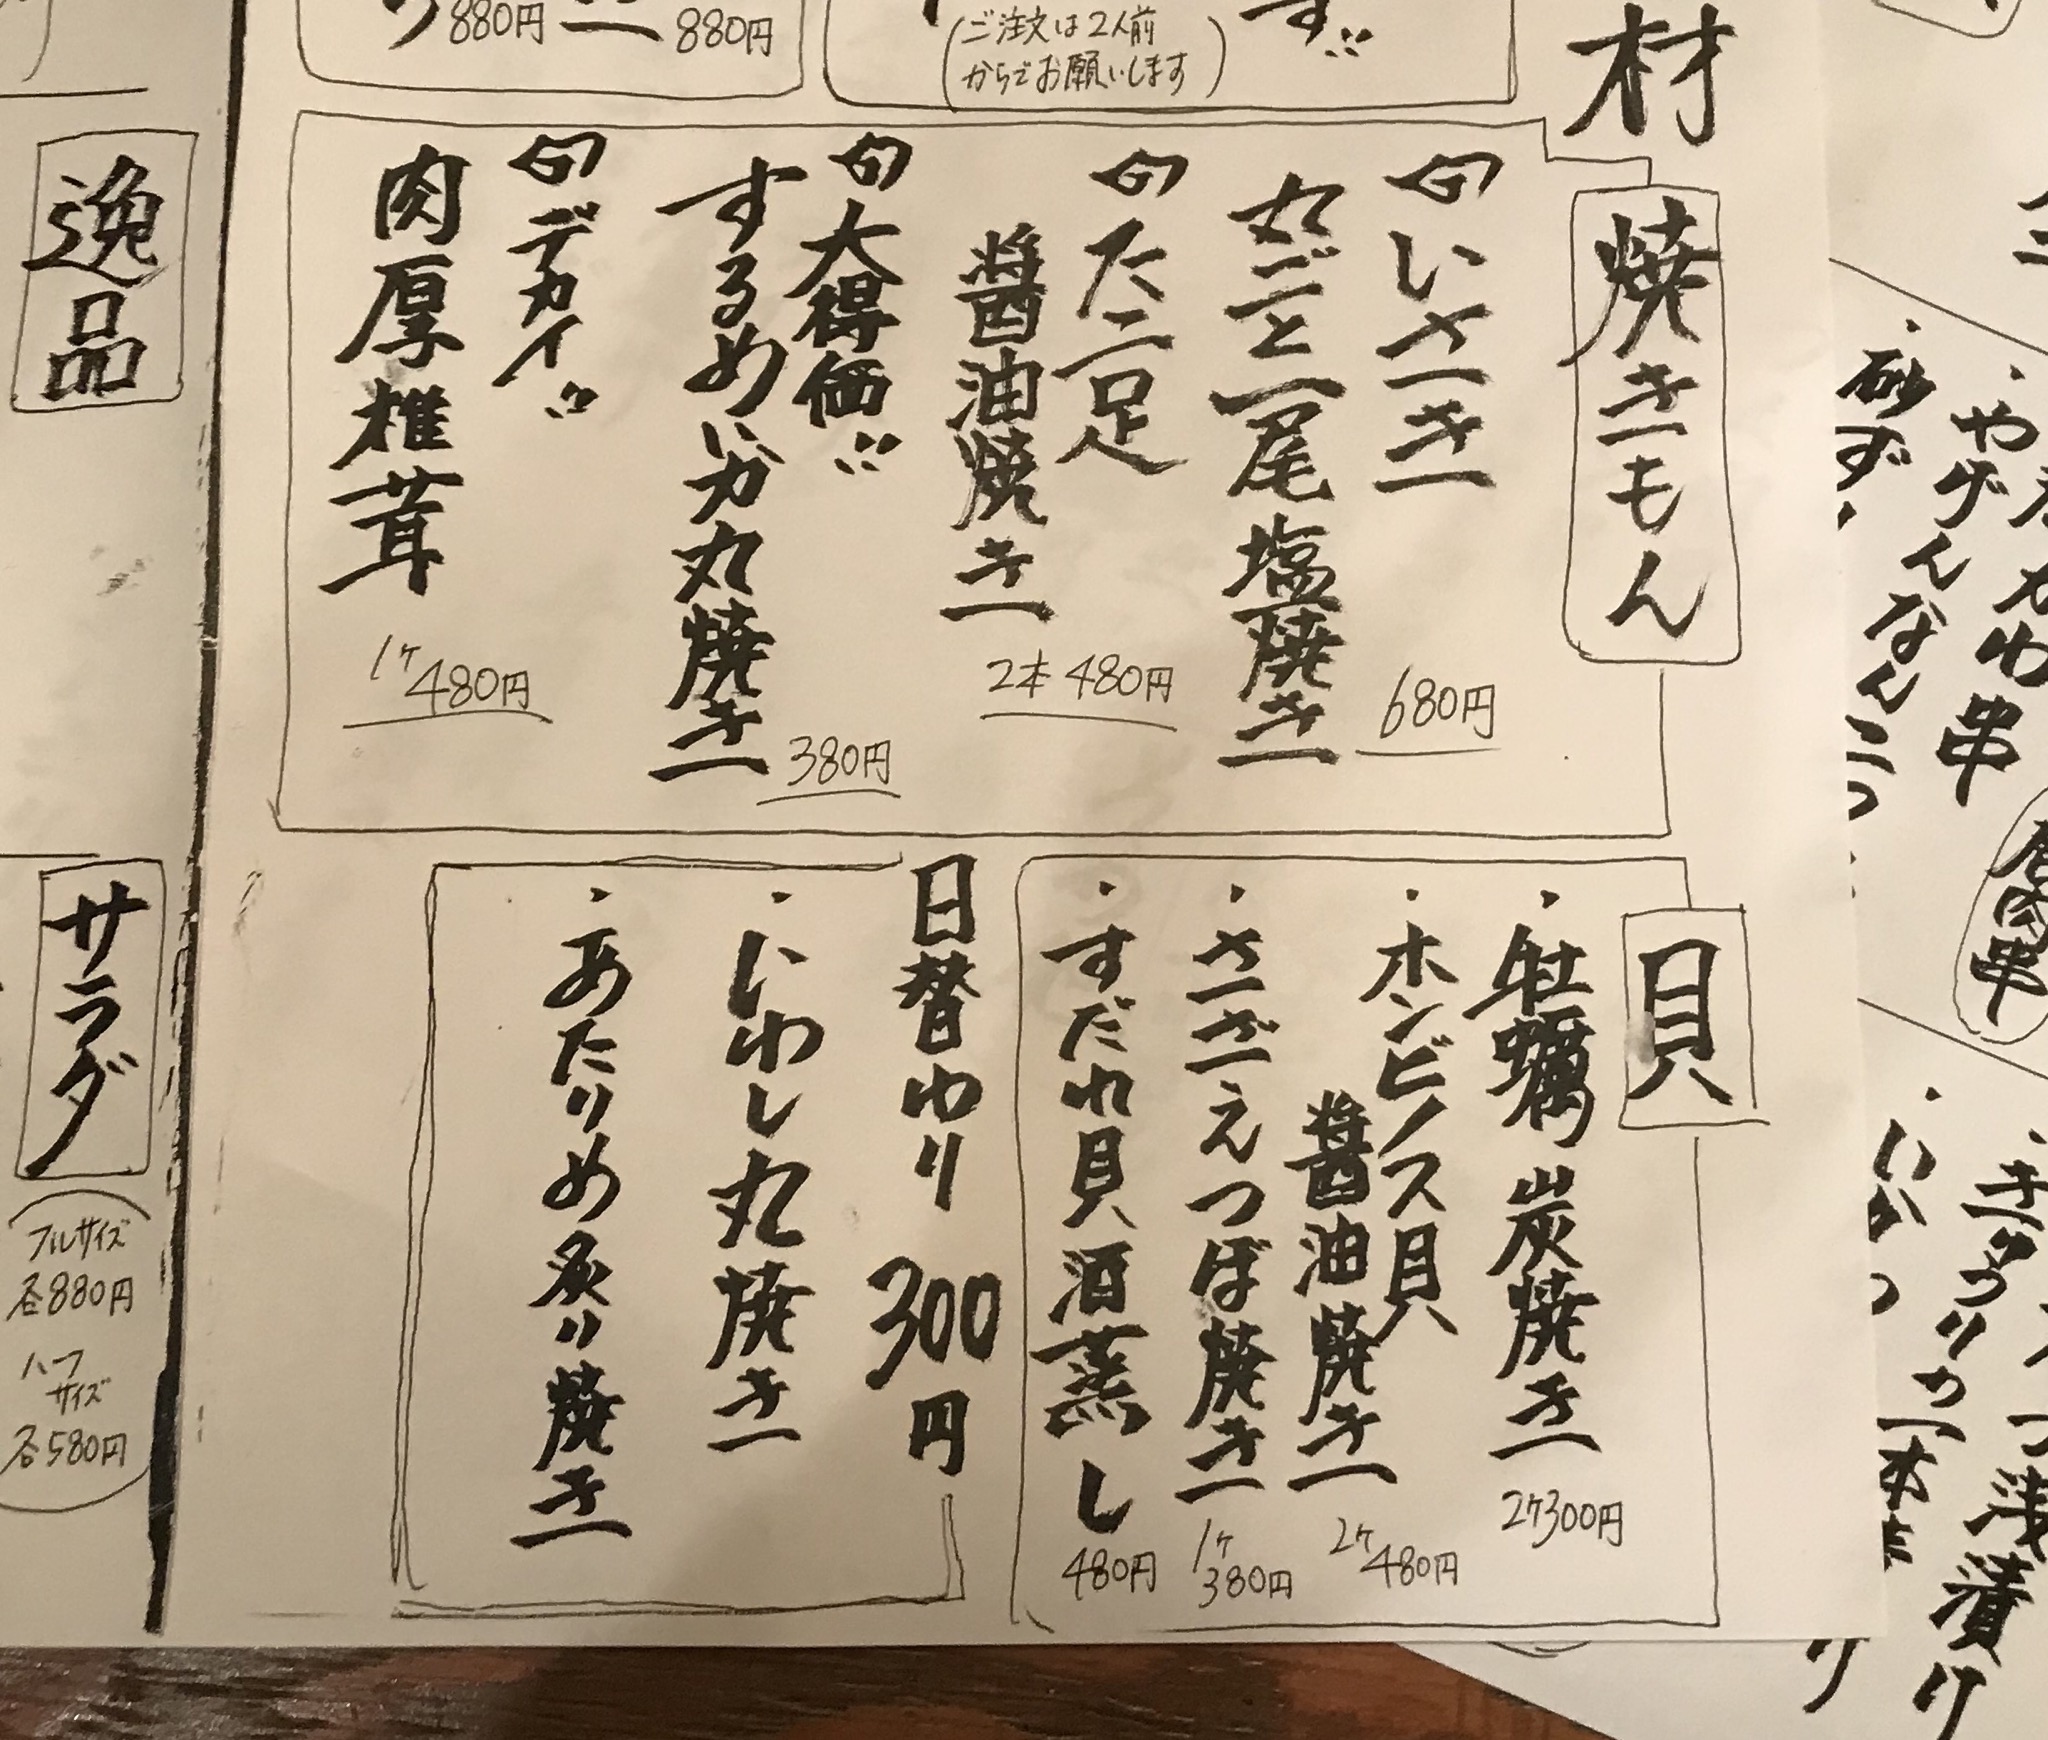 材
880円
880円
(ご注文は2人前
からでお願いします)
焼きもん
いさき
丸ごと一尾塩焼き
680円
たこ足
醤油焼き
2本 480円
大得価!!
するめいか丸焼き
380円
デカイ!!
肉厚椎茸
1ヶ480円
貝
・牡蠣炭焼き
2ヶ300円
・ホンビノス貝
醤油焼き
2ヶ480円
・さざえつぼ焼き
1ヶ380円
・すだれ貝酒蒸し
480円
日替わり 300円
・にわし丸焼き
・あたりめ炙り焼き
逸品
サラダ
フルサイズ
各880円
ハーフ
サイズ
各580円
かわ串
・やげんなんこつ
・砂ずり
唐肉串
つ浅漬け
・きゅうりの一本
・いか